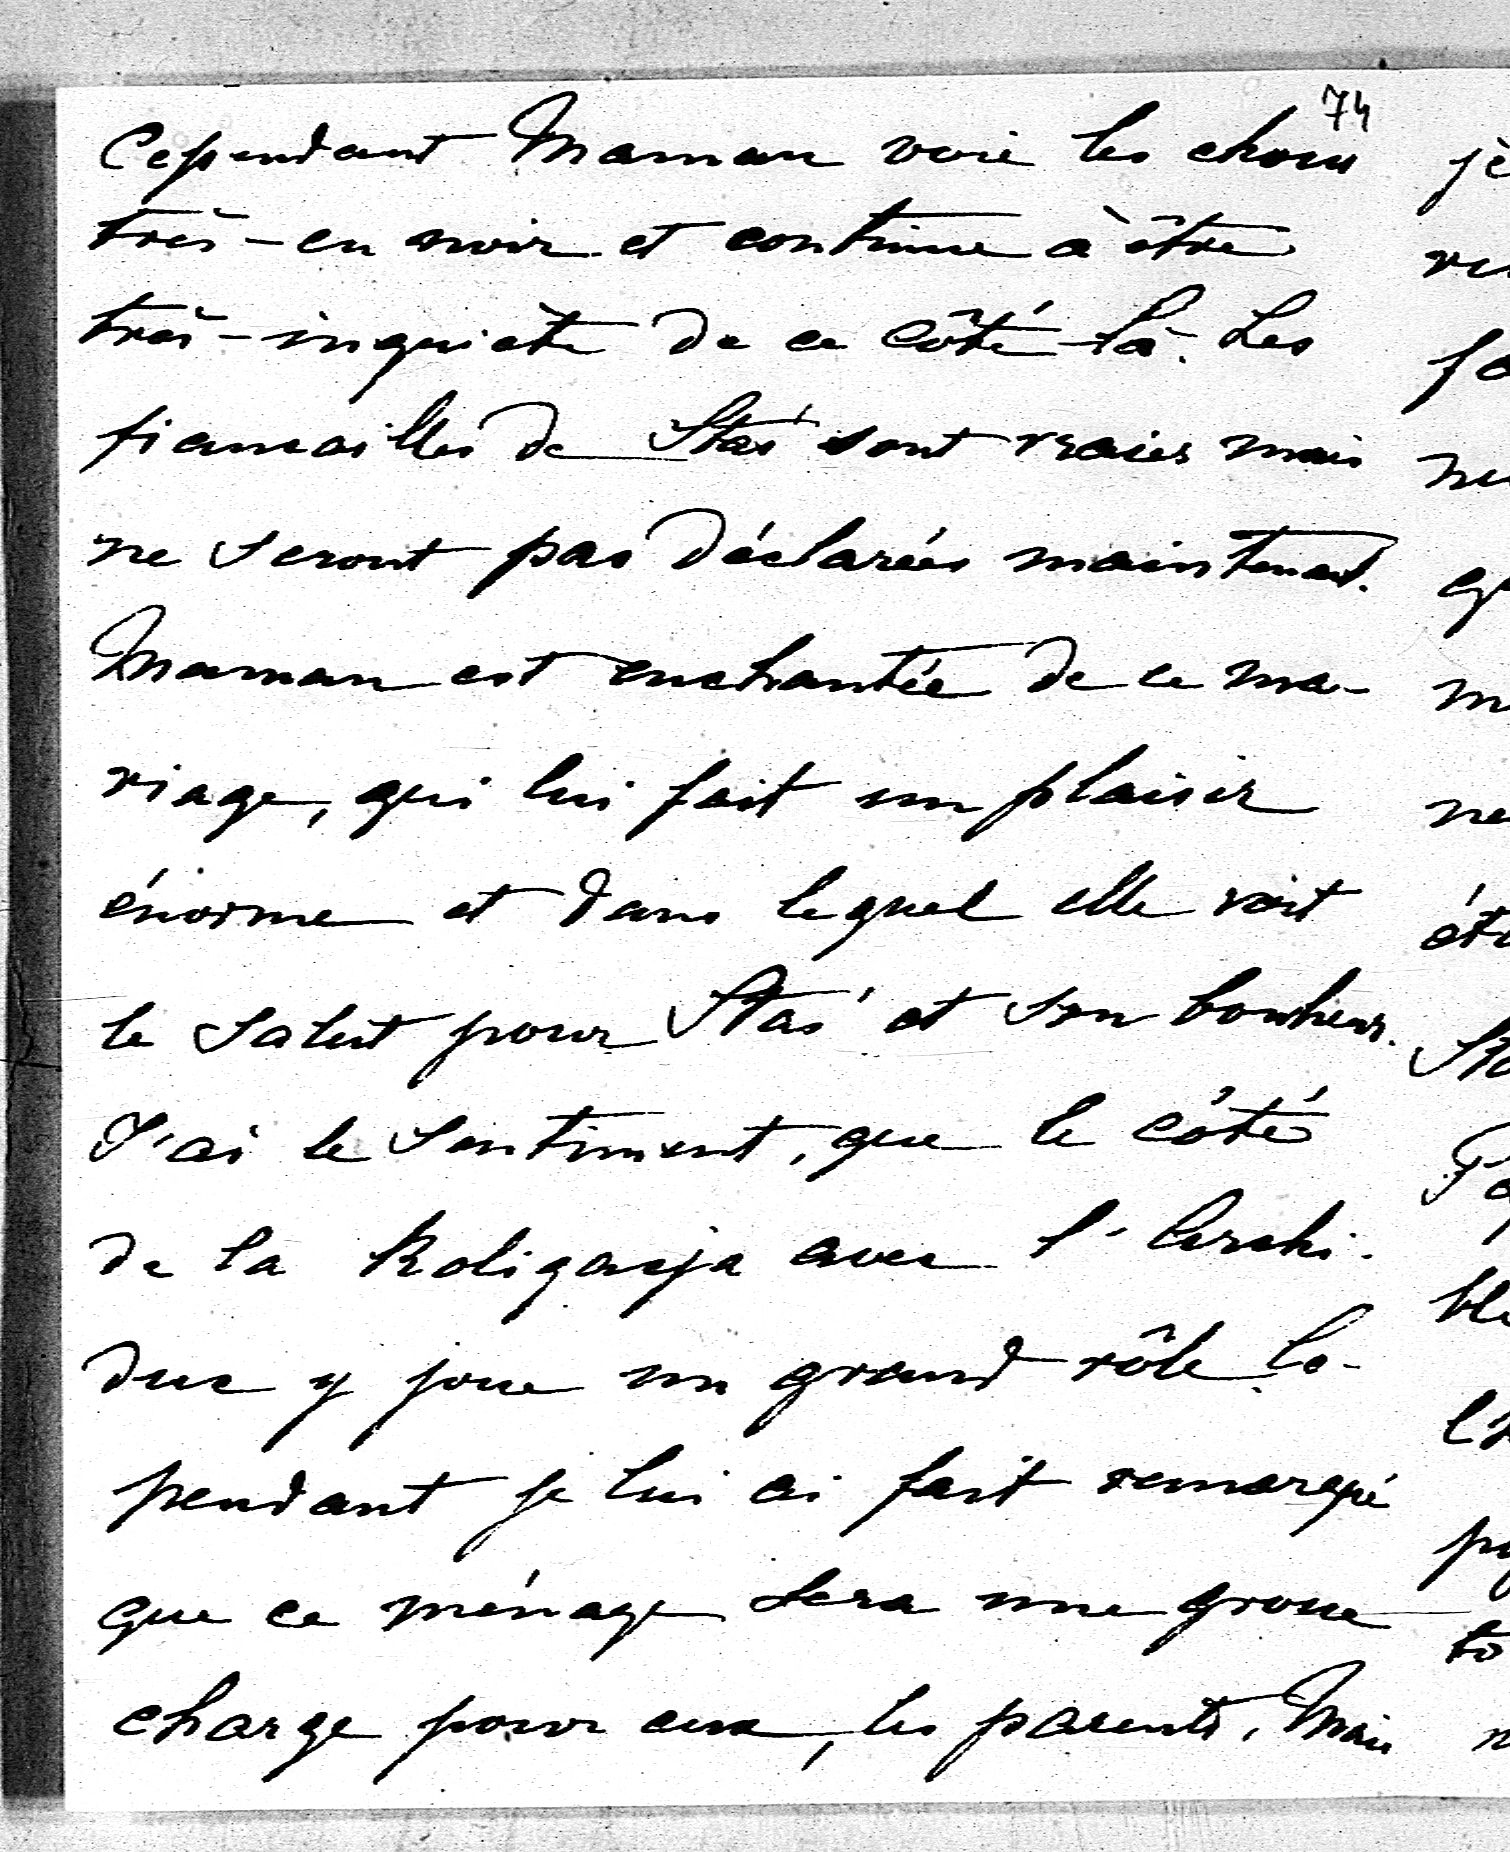 74
Cependant Maman voie les choses
très-en noir et continue à être
très-inquiète de ce côté-là. Les
fiancailles de Staś sont vraies mais
ne seront pas déclarées maintenant.
Maman est enchantée de ce ma-
riage, qui lui fait un plaisir
énorme et dans lequel elle voit
le salut pour Staś et son bonheur.
J'ai le sentiment, que le côté
de la Koligacja avec l'Archi-
duc y joue un grand rôle. Ce-
pendant je lui ai fait remarqué
que ce ménage sera une grosse
charge pour eux, les parents. Mais